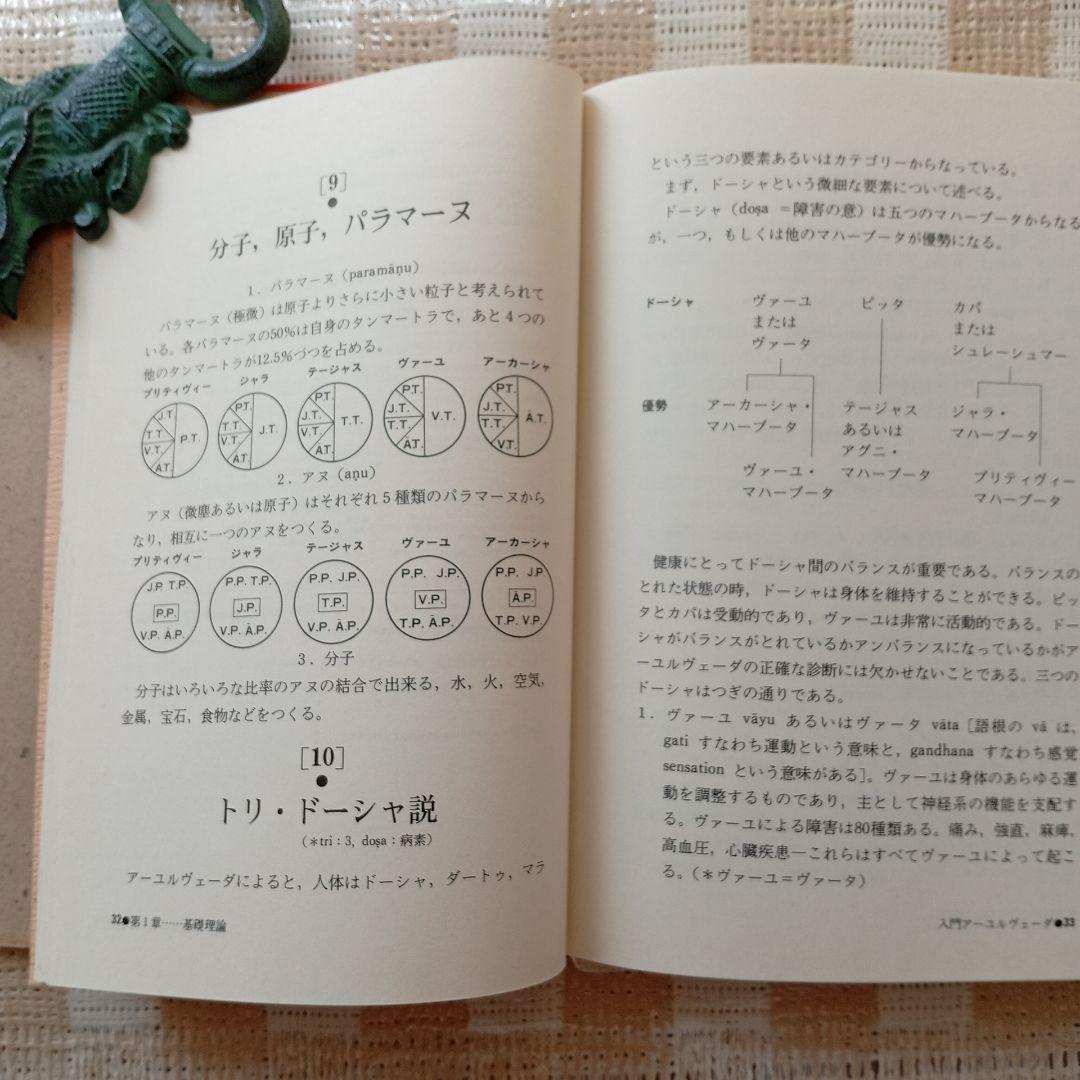 [9]
●
分子，原子，パラマーヌ
1．パラマーヌ（paramāṇu）
パラマーヌ（極微）は原子よりさらに小さい粒子と考えられて
いる。各パラマーヌの50%は自身のタンマートラで，あと4つの
他のタンマートラが12.5%づつを占める。
プリティヴィー ジャラ テージャス ヴァーユ アーカーシャ
J.T. T.T. V.T. Ā.T. P.T.
P.T. T.T. V.T. Ā.T. J.T.
P.T. J.T. V.T. Ā.T. T.T.
P.T. J.T. T.T. Ā.T. V.T.
P.T. J.T. T.T. V.T. Ā.T.
2．アヌ（aṇu）
アヌ（微塵あるいは原子）はそれぞれ5種類のパラマーヌから
なり，相互に一つのアヌをつくる。
プリティヴィー ジャラ テージャス ヴァーユ アーカーシャ
J.P. T.P. P.P. V.P. Ā.P.
P.P. T.P. J.P. V.P. Ā.P.
P.P. J.P. T.P. V.P. Ā.P.
P.P. J.P. V.P. T.P. Ā.P.
P.P. J.P. Ā.P. T.P. V.P.
3．分子
分子はいろいろな比率のアヌの結合で出来る，水，火，空気，
金属，宝石，食物などをつくる。
[10]
●
トリ・ドーシャ説
（＊tri：3, doṣa：病素）
アーユルヴェーダによると，人体はドーシャ，ダートゥ，マラ
32●第1章……基礎理論
という三つの要素あるいはカテゴリーからなっている。
まず，ドーシャという微細な要素について述べる。
ドーシャ（doṣa ＝障害の意）は五つのマハーブータからなる
が，一つ，もしくは他のマハーブータが優勢になる。
ドーシャ ヴァーユ ピッタ カパ
または または
ヴァータ シュレーシュマー
優勢 アーカーシャ・ テージャス ジャラ・
マハーブータ あるいは マハーブータ
アグニ・
ヴァーユ・ マハーブータ プリティヴィー
マハーブータ マハーブータ
健康にとってドーシャ間のバランスが重要である。バランスの
とれた状態の時，ドーシャは身体を維持することができる。ピッ
タとカパは受動的であり，ヴァーユは非常に活動的である。ドー
シャがバランスがとれているかアンバランスになっているかがア
ーユルヴェーダの正確な診断には欠かせないことである。三つの
ドーシャはつぎの通りである。
1．ヴァーユ vāyu あるいはヴァータ vāta［語根の vā は，
gati すなわち運動という意味と，gandhana すなわち感覚
sensation という意味がある］。ヴァーユは身体のあらゆる運
動を調整するものであり，主として神経系の機能を支配す
る。ヴァーユによる障害は80種類ある。痛み，強直，麻痺，
高血圧，心臓疾患―これらはすべてヴァーユによって起こ
る。（＊ヴァーユ＝ヴァータ）
入門アーユルヴェーダ●33